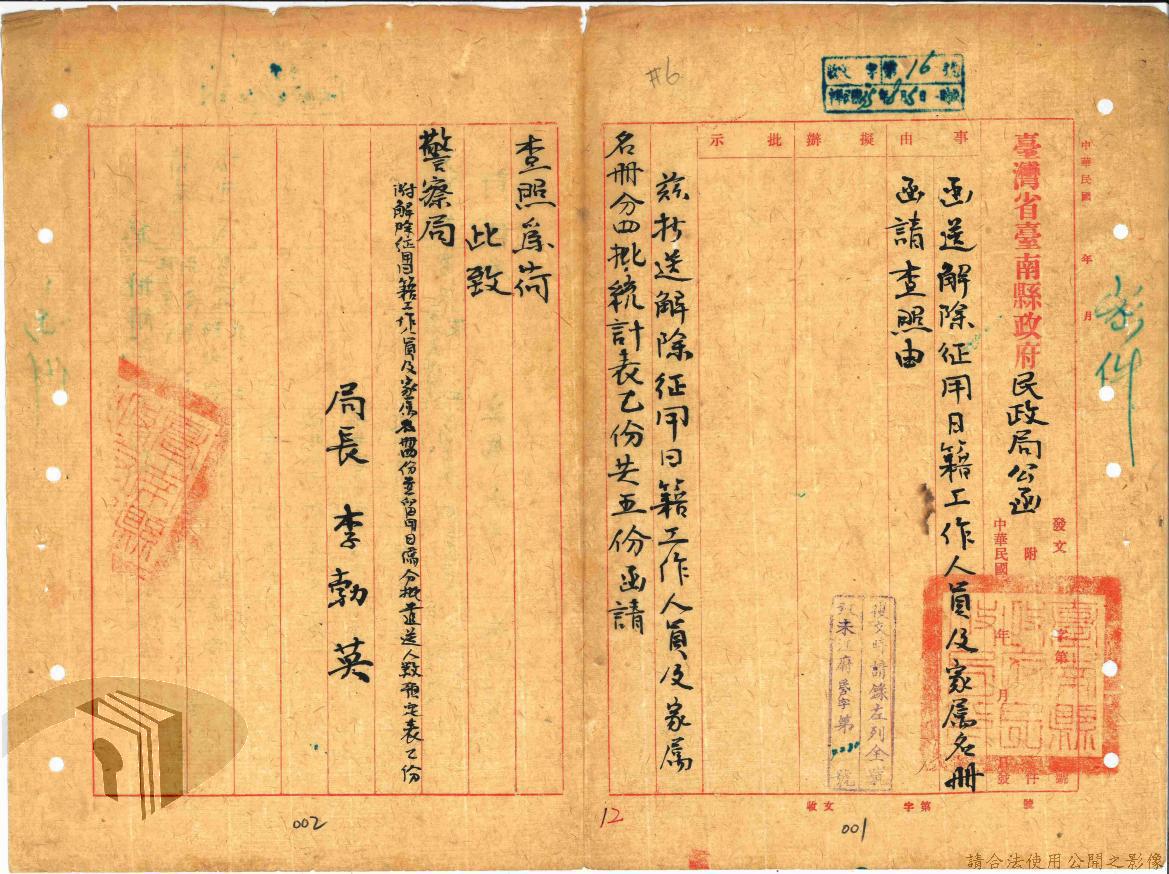 #6
收文 字第16號
中華民國 年 月
臺灣省臺南縣政府民政局公函
發文 字第 號
附 件
中華民國 年 月 日發
事由
擬辦
批示
函送解除征用日籍工作人員及家屬名冊
函請查照由
茲抄送解除征用日籍工作人員及家屬
名冊分四批統計表乙份共五份函請
復文時請錄左列全銜
收文 字第 號
12
001
查照為荷
此致
警察局
附解除征用日籍工作人員及家屬名冊四份並留用日僑分批遣送人數預定表乙份
局長 李勃英
002
請合法使用公開之影像